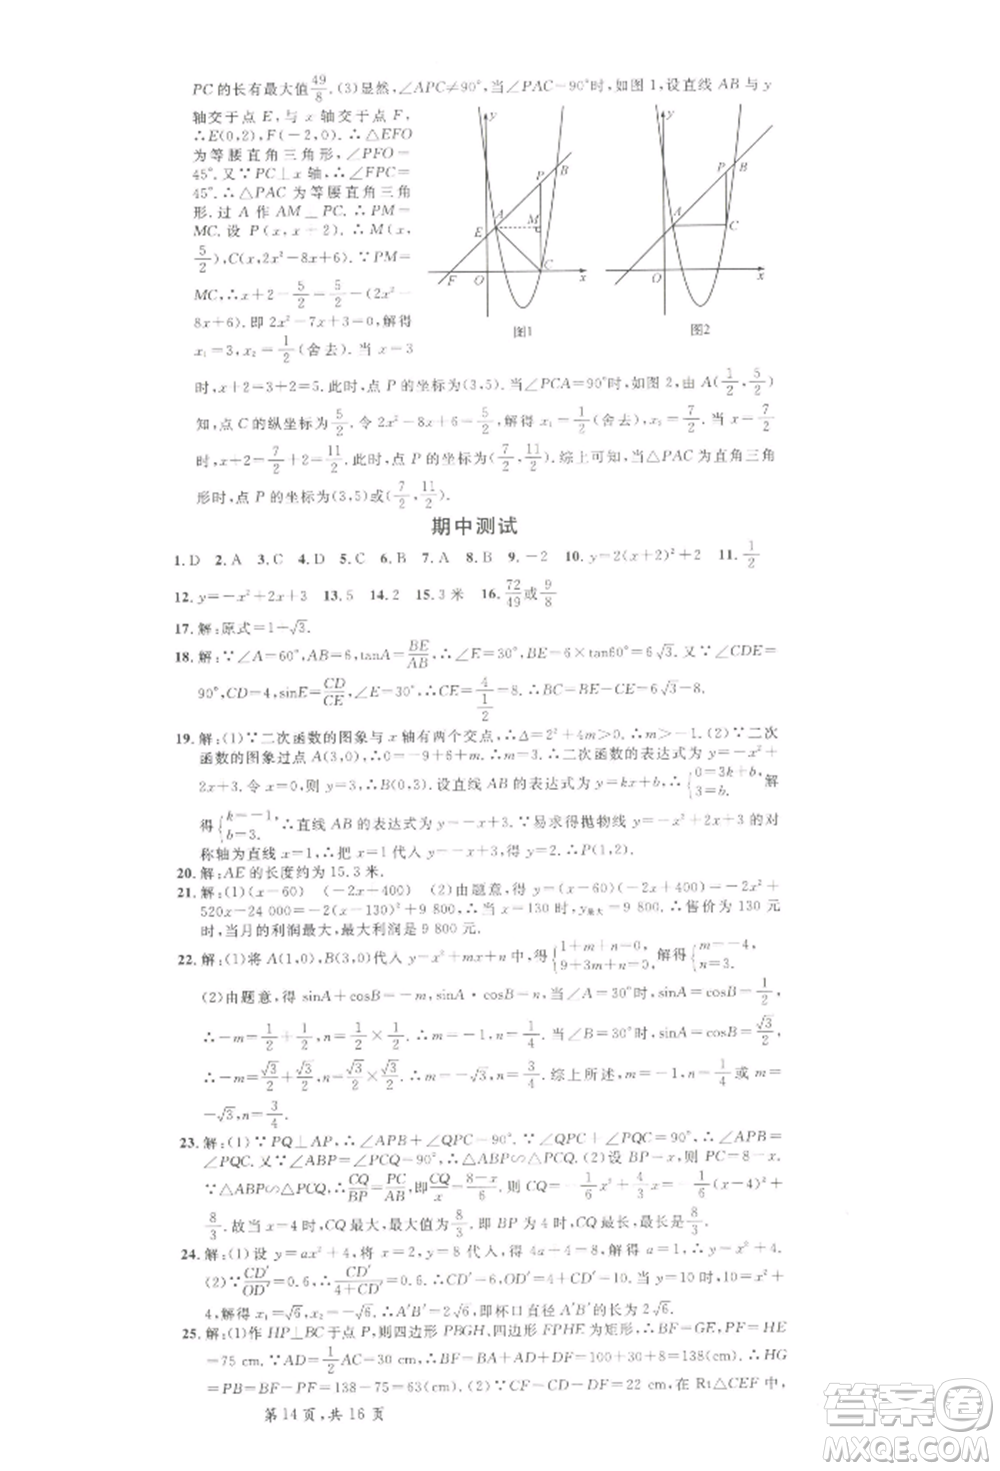 PC的长有最大值49/8.(3)显然,∠APC≠90°,当∠PAC=90°时,如图1,设直线AB与y
轴交于点E,与x轴交于点F,则
∴E(0,2),F(-2,0).∴△EFO
为等腰直角三角形,∠PFO=
45°.又∵PC⊥x轴,∴∠FPC=
45°.∴△PAC为等腰直角三角
形.过A作AM⊥PC.∴PM=
MC.设P(x,x+2),则M(x,
5/2),C(x,2x²-8x+6).∵PM=
MC,∴x+2-5/2=5/2-(2x²-
8x+6).即2x²-7x+3=0,解得
x₁=3,x₂=1/2(舍去).当x=3
y
B
P
A
M
E
C
F
O
x
图1
y
P
B
A
C
O
x
图2
时,x+2=3+2=5.此时,点P的坐标为(3,5).当∠PCA=90°时,如图2,由A(1/2,5/2)
知,点C的纵坐标为5/2.令2x²-8x+6=5/2,解得x₁=1/2(舍去),x₂=7/2.当x=7/2
时,x+2=7/2+2=11/2.此时,点P的坐标为(7/2,11/2).综上可知,当△PAC为直角三角
形时,点P的坐标为(3,5)或(7/2,11/2).
期中测试
1.D 2.A 3.C 4.D 5.C 6.B 7.A 8.B 9.-2 10.y=2(x+2)²+2 11.1/2
12.y=-x²+2x+3 13.5 14.2 15.3米 16.72/49或9/8
17.解:原式=1-√3.
18.解:∵∠A=60°,AB=6,tanA=BE/AB,∴∠E=30°,BE=6×tan60°=6√3.又∵∠CDE=
90°,CD=4,sinE=CD/CE,∠E=30°,∴CE=4/(1/2)=8.∴BC=BE-CE=6√3-8.
19.解:(1)∵二次函数的图象与x轴有两个交点,∴Δ=2²+4m>0.∴m>-1.(2)∵二次
函数的图象过点A(3,0),∴0=-9+6+m.∴m=3.∴二次函数的表达式为y=-x²+
2x+3.令x=0,则y=3,∴B(0,3).设直线AB的表达式为y=kx+b,∴{0=3k+b,3=b.解
得{k=-1,b=3.∴直线AB的表达式为y=-x+3.∵易求得抛物线y=-x²+2x+3的对
称轴为直线x=1,∴把x=1代入y=-x+3,得y=2.∴P(1,2).
20.解:AE的长度约为15.3米.
21.解:(1)(x-60) (-2x+400) (2)由题意,得y=(x-60)(-2x+400)=-2x²+
520x-24 000=-2(x-130)²+9 800,∴当x=130时,y最大=9 800.∴售价为130元
时,当月的利润最大,最大利润是9 800元.
22.解:(1)将A(1,0),B(3,0)代入y=x²+mx+n中,得{1+m+n=0,9+3m+n=0.解得{m=-4,n=3.
(2)由题意,得sinA+cosB=-m,sinA·cosB=n,当∠A=30°时,sinA=cosB=1/2,
∴-m=1/2+1/2,n=1/2×1/2.∴m=-1,n=1/4.当∠B=30°时,sinA=cosB=√3/2,
∴-m=√3/2+√3/2,n=√3/2×√3/2.∴m=-√3,n=3/4.综上所述,m=-1,n=1/4或m=
-√3,n=3/4.
23.解:(1)∵PQ⊥AP,∴∠APB+∠QPC=90°.∵∠QPC+∠PQC=90°,∴∠APB=
∠PQC.又∵∠ABP=∠PCQ=90°,∴△ABP∽△PCQ.(2)设BP=x,则PC=8-x.
∵△ABP∽△PCQ,∴CQ/BP=PC/AB,即CQ/x=(8-x)/6.则CQ=-1/6x²+4/3x=-1/6(x-4)²
+8/3.故当x=4时,CQ最大,最大值为8/3.即BP为4时,CQ最长,最长为8/3.
24.解:(1)设y=ax²+4,将x=2,y=8代入,得4a+4=8.解得a=1.∴y=x²+4.
(2)∵CD′/OD′=0.6,∴CD′/(4+CD′)=0.6.∴CD′=6,OD′=4+6=10.当y=10时,10=x²+
4,解得x₁=√6,x₂=-√6.∴A′B′=2√6,即杯口直径A′B′的长为2√6.
25.解:(1)作HP⊥BC于点P,则四边形PBGH、四边形FPHE为矩形,∴BF=GE,PF=HE
=75 cm.∵AD=1/2AC=30 cm,∴BF=BA+AD+DF=100+30+8=138(cm).∴HG
=PB=BF-PF=138-75=63(cm).(2)∵CF=CD-DF=22 cm,在Rt△CEF中,
第14页,共16页
答案圈
MXQE.COM